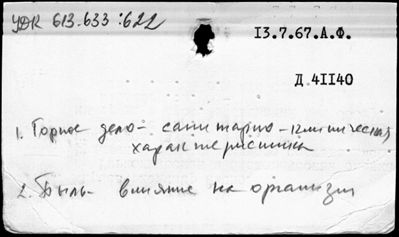 УДК 613.633:622
I3.7.67.А.Ф.
Д 4II40
1. Горное дело - санитарно-клиническая
характеристика
2. Пыль - влияние на организм